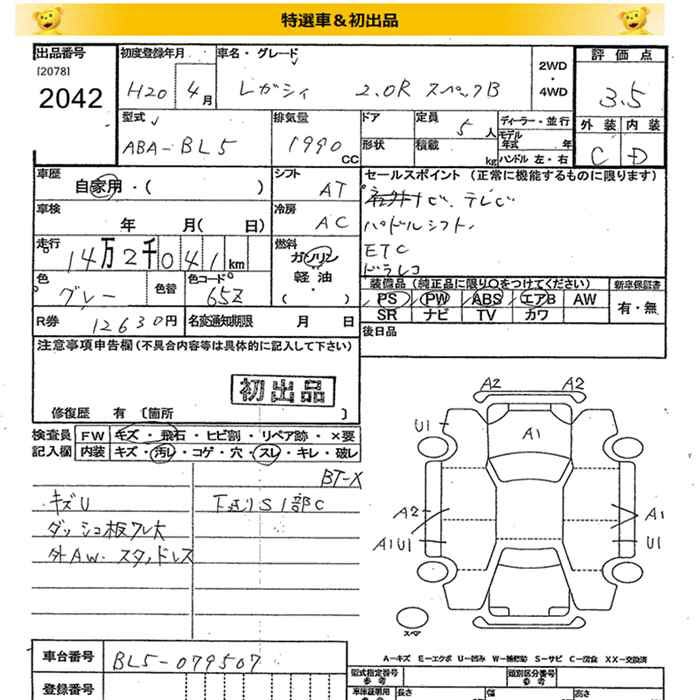 特選車&初出品
出品番号 [2078] 2042
初度登録年月 H20 4月
車名・グレード レガシィ 2.0R スペックB
2WD・4WD
評価点 3.5
外装 内装
C D
型式 ABA-BL5
排気量 1990 CC
ドア 形状
定員 5人
積載 kg
ディーラー・並行
モデル年式 年
ハンドル 左・右
車歴 自家用・( )
シフト AT
セールスポイント (正常に機能するものに限ります)
ナビ、テレビ
パドルシフト
ETC
ドラレコ
車検 年 月( 日)
冷房 AC
走行 14万2千041km
燃料 ガソリン 軽油 ・( )
色 グレー
色替
色コード 65Z
装備品 (純正品に限り○をつけてください)
新車保証書
PS PW ABS エアB AW
SR ナビ TV カワ
有・無
R券 12630円
名変通知期限 月 日
後日品
注意事項申告欄 (不具合内容等は具体的に記入して下さい)
初出品
修復歴 有 [箇所 ]
検査員記入欄
FW キズ・飛石・ヒビ割・リペア跡・×要
内装 キズ・汚レ・コゲ・穴・スレ・キレ・破レ
BT-X
キズU
下廻りS1部C
外AW・スタッドレス
A2 A2
U1
A1
A2
A1
A1U1
U1
スペア
車台番号 BL5-079507
A-キズ E-エクボ U-凹み W-補修跡 S-サビ C-腐食 XX-交換済
登録番号
型式指定番号 参考
類別区分番号 参考
車庫証明用 参考
長さ
幅
高さ